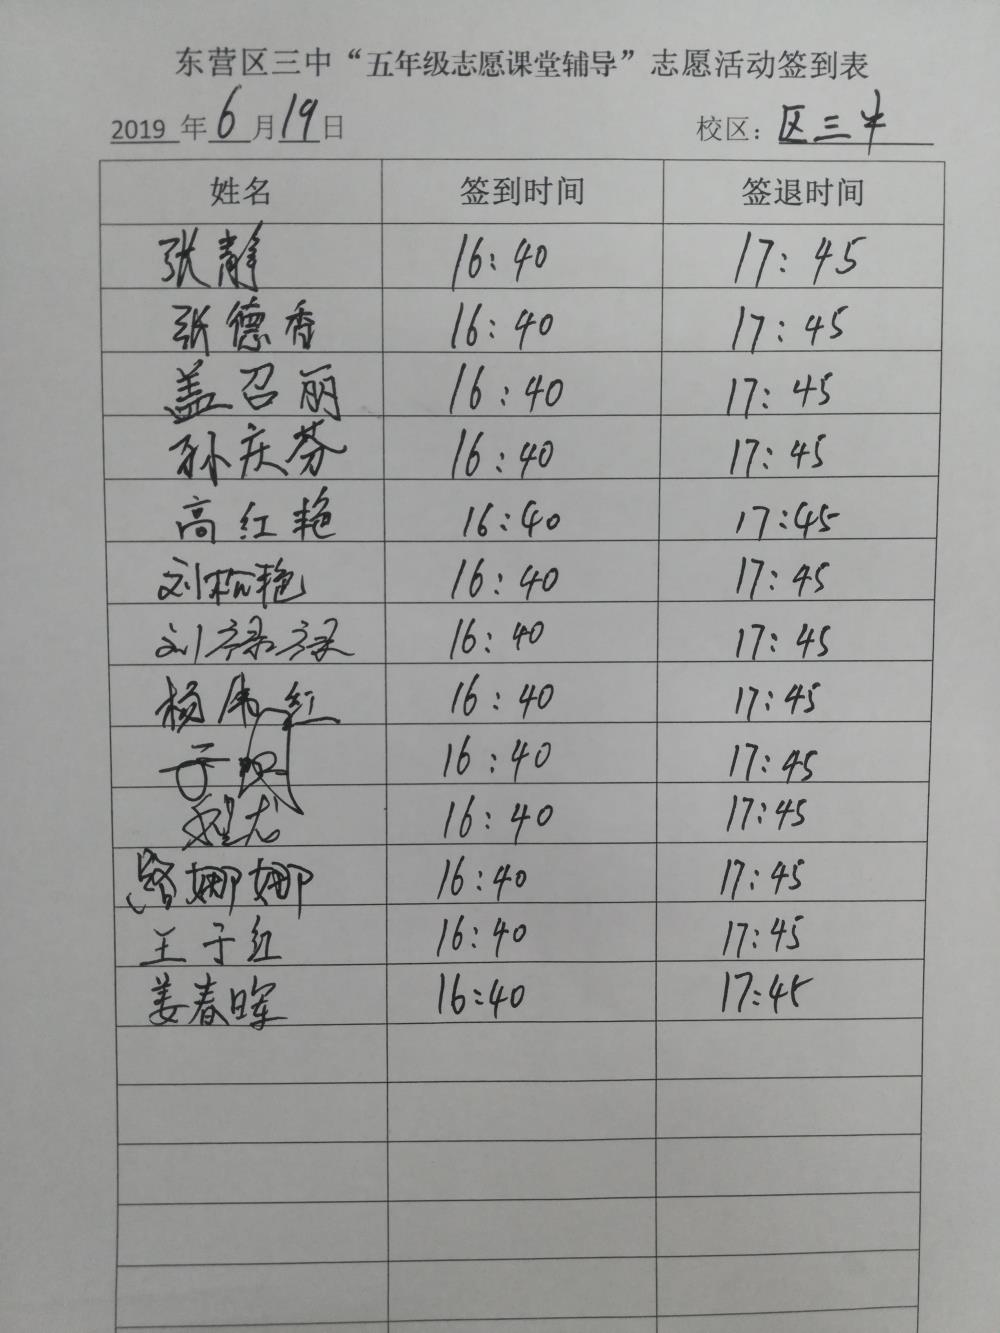 东营区三中“五年级志愿课堂辅导”志愿活动签到表
2019 年 6 月 19 日 校区：区三中
姓名 签到时间 签退时间
张静 16:40 17:45
张德香 16:40 17:45
盖召丽 16:40 17:45
孙庆芬 16:40 17:45
高红艳 16:40 17:45
刘松艳 16:40 17:45
刘禄禄 16:40 17:45
杨伟红 16:40 17:45
于 16:40 17:45
程龙 16:40 17:45
娜娜 16:40 17:45
王于红 16:40 17:45
姜春晖 16:40 17:45